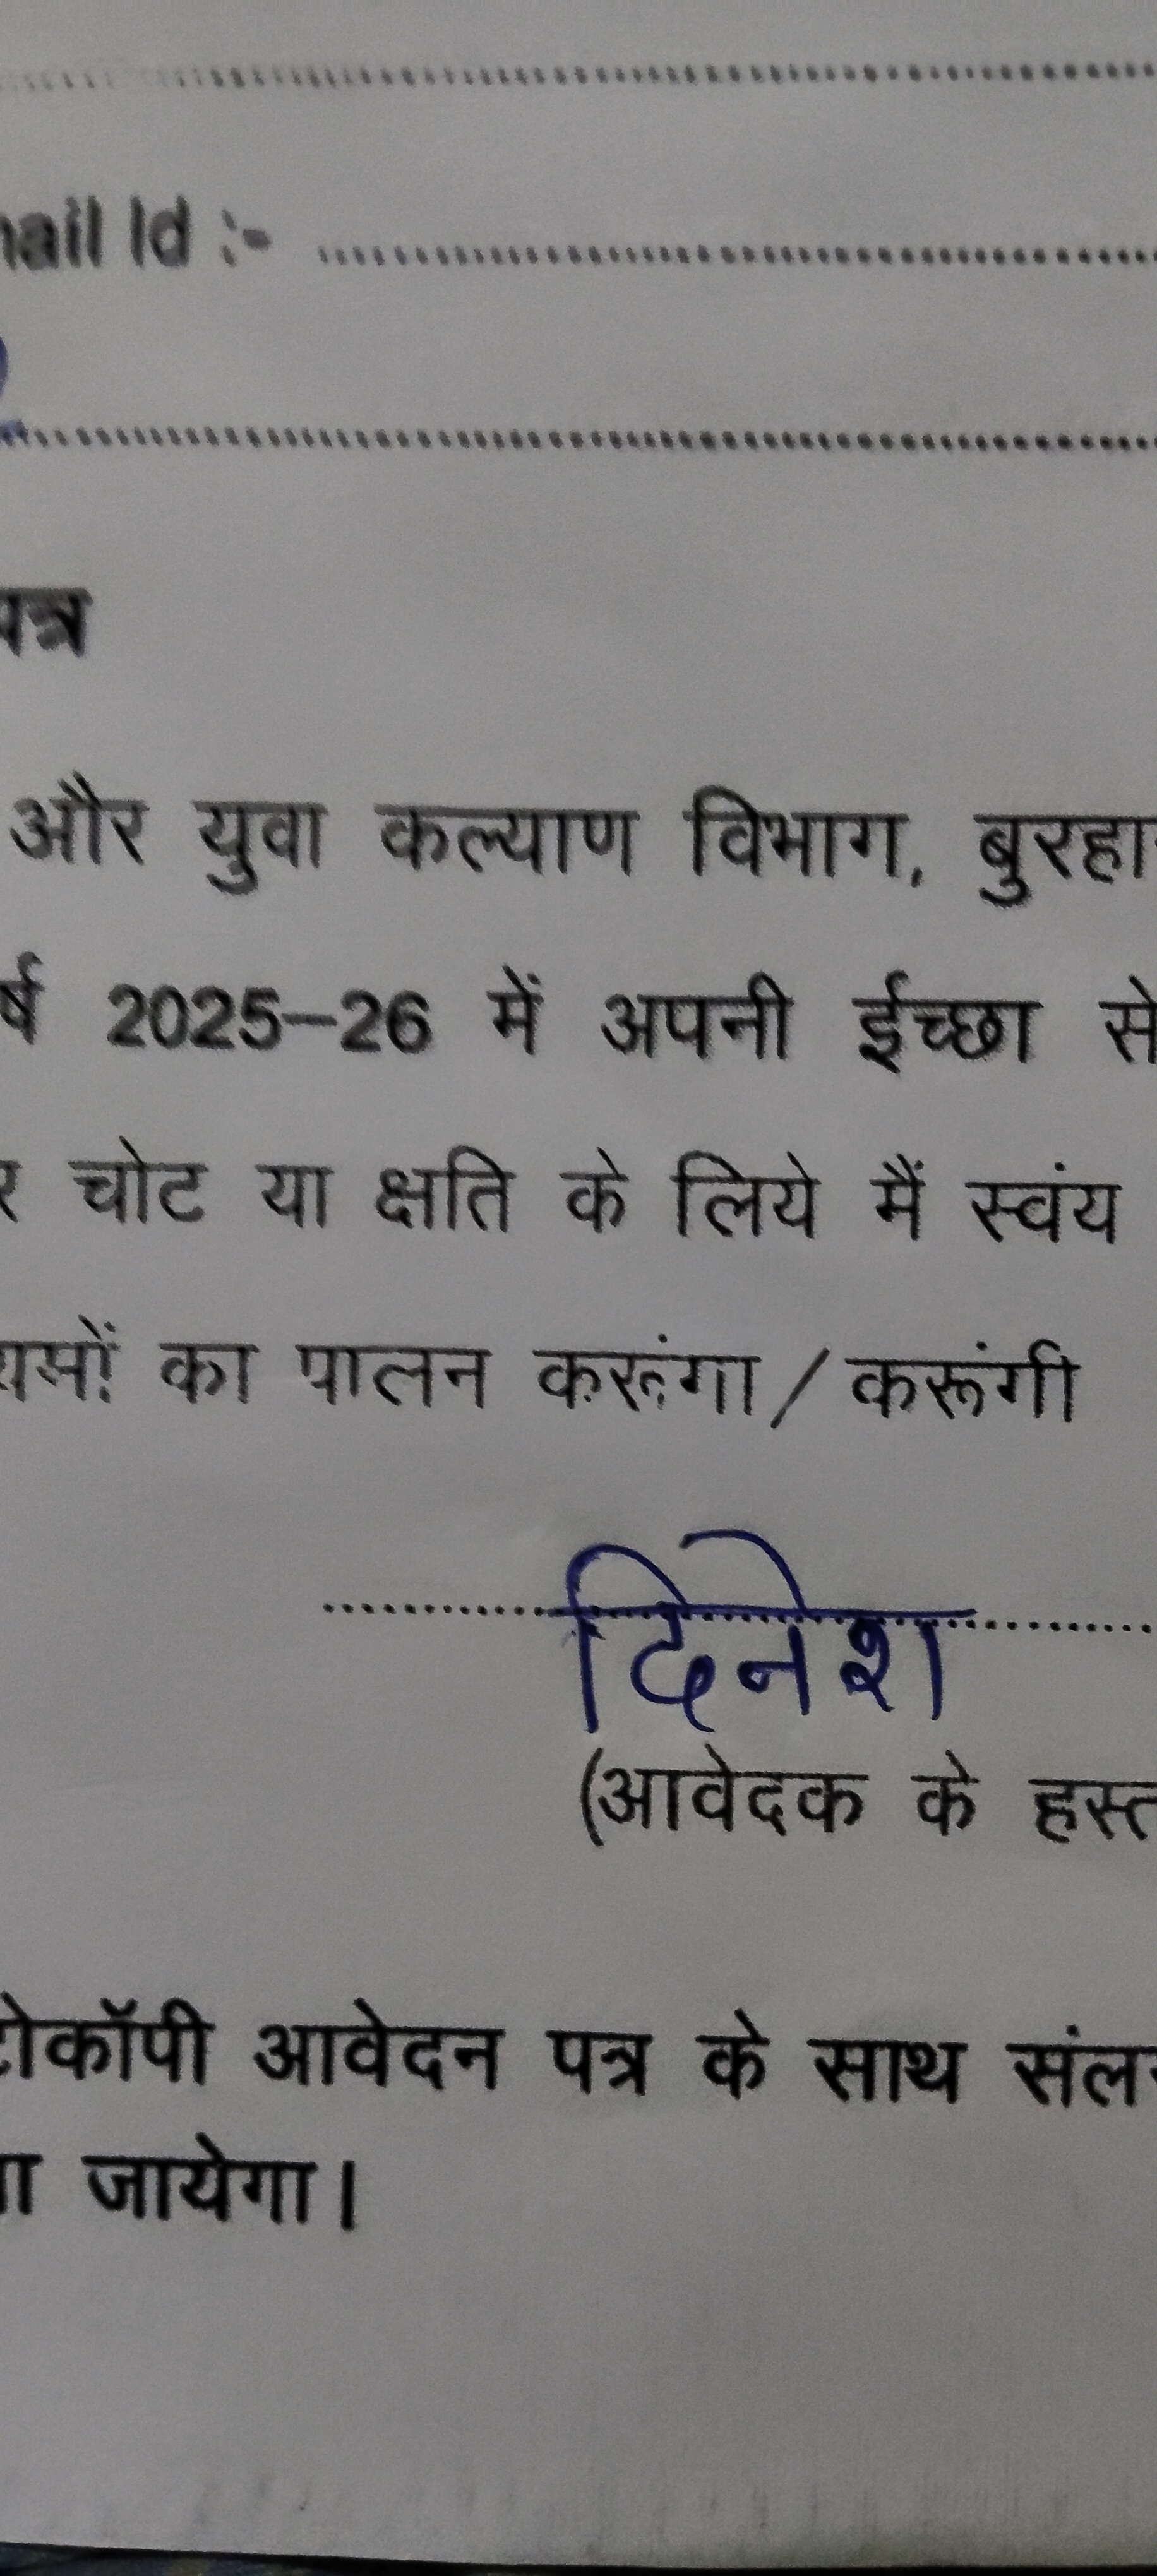 mail Id :- ........................................
पत्र
और युवा कल्याण विभाग, बुरहा
र्ष 2025-26 में अपनी ईच्छा से
चोट या क्षति के लिये मैं स्वंय
यमों का पालन करूंगा/करूंगी
दिनेश
(आवेदक के हस्त
टोकॉपी आवेदन पत्र के साथ संल
जायेगा।